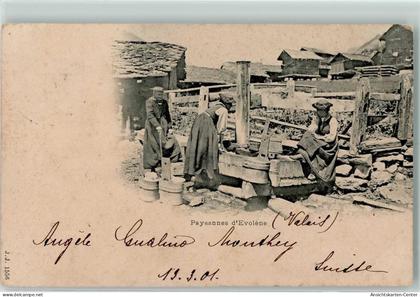 Payannes d'Evolène
(Valais)
Angèle Gualino Monthey
12.3.01. Suisse
J. J. 1556
© Ansichtskarten-Center